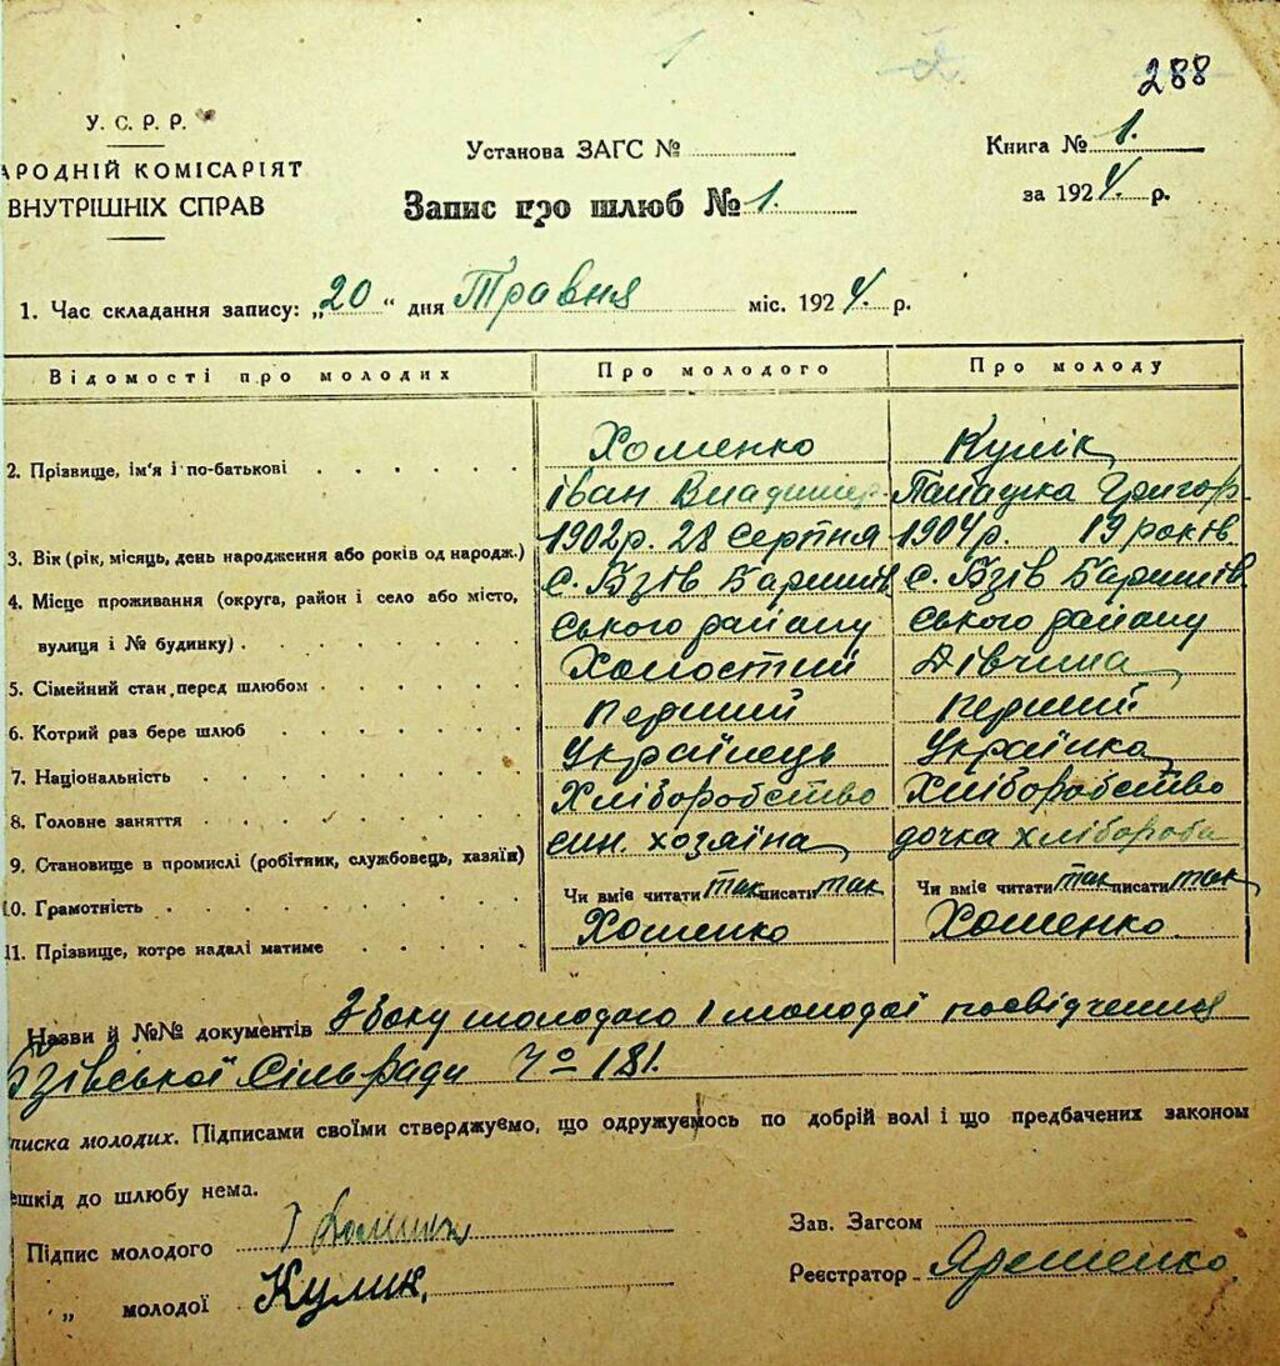 288
У. С. Р. Р.
АРОДНІЙ КОМІСАРІЯТ
ВНУТРІШНІХ СПРАВ
Установа ЗАГС №
Запис про шлюб № 1.
Книга № 1.
за 1924. р.
1. Час складання запису: „20“ дня Травня міс. 1924. р.
Відомості про молодих
Про молодого
Про молоду
2. Прізвище, ім'я і по-батькові
Хоменко
Кулік
іван Владимер.
Палажка Григор.
3. Вік (рік, місяць, день народження або років од народж.)
1902р. 28 Серпня
1904р. 19 років.
4. Місце проживання (округа, район і село або місто,
вулиця і № будинку)
С. Бзів Баришів
ського району
С. Бзів Баришів
ського району
5. Сімейний стан перед шлюбом
Холостий
Дівчина
6. Котрий раз бере шлюб
перший
перший
7. Національність
Українець
Українка
8. Головне заняття
Хліборобство
Хліборобство
9. Становище в промислі (робітник, службовець, хазяїн)
син. хозяїна
дочка хлібороба
10. Грамотність
Чи вміє читати так писати так
Чи вміє читати так писати так
11. Прізвище, котре надалі матиме
Хоменко
Хоменко.
Назви й №№ документів Збоку молодого і молодої посвідчення
Бзівської Сільради Чо 181.
писка молодих. Підписами своїми стверджуємо, що одружуємось по добрій волі і що предбачених законом
ешкід до шлюбу нема.
Підпис молодого
„ молодої Кулик.
Зав. Загсом
Реєстратор Яременко